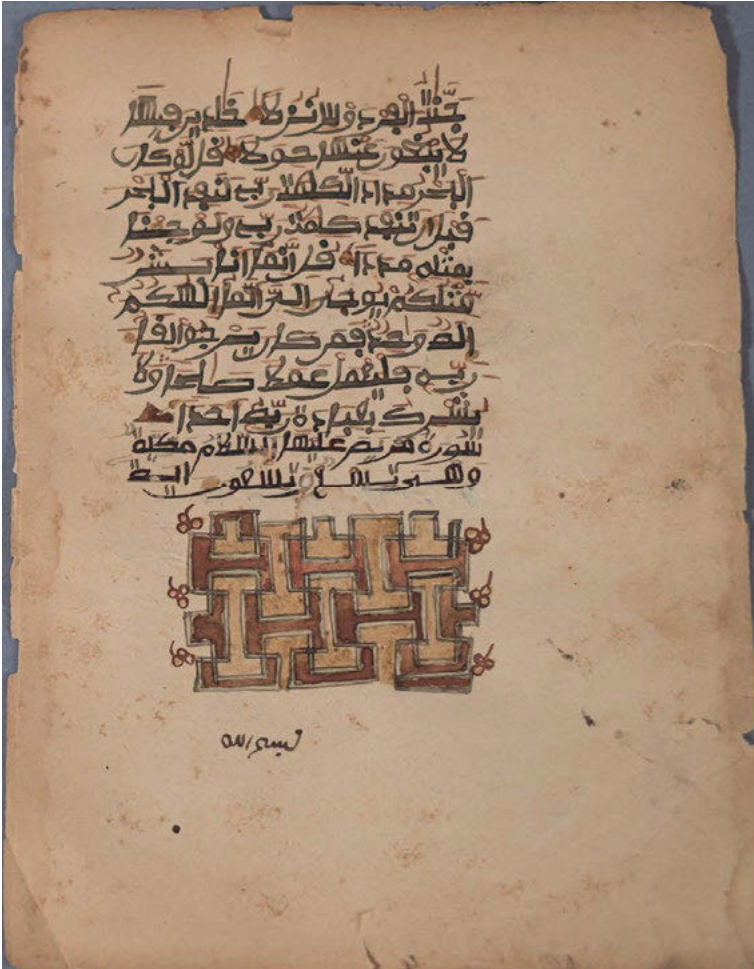 جنت الفردوس نزلا خلدين فيها
لا يبغون عنها حولا قل لو كان
البحر مدادا لكلمت ربي لنفد البحر
قبل ان تنفد كلمت ربي ولو جئنا
بمثله مددا قل انما انا بشر
مثلكم يوحى الي انما الهكم
اله وحد فمن كان يرجوا لقا
ربه فليعمل عملا صلحا ولا
يشرك بعبادة ربه احدا
سورة مريم عليها السلام مكية
وهي تسع وتسعون اية
بسم الله